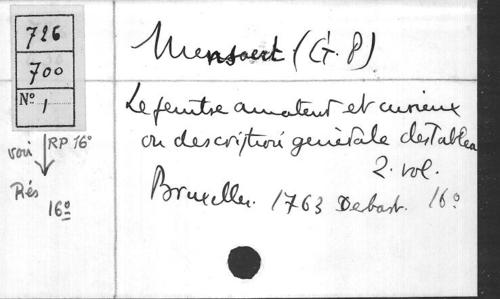 726
700
Nº 1
voir RP 16º
Rés
16º
Mensaert (G. P)
Le peintre amateur et curieux
ou description générale des Tablea
2. vol.
Bruxelles. 1763 De Bast. 16º